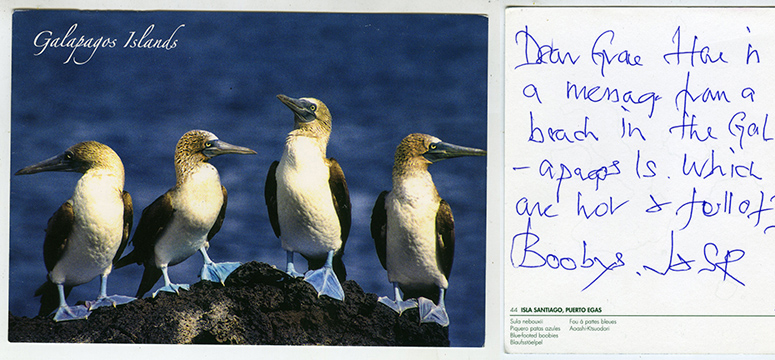 Galapagos Islands
Dear Grae Here is
a message from a
beach in the Gal
-apagos Is. Which
are hot & full of
Boobys.
44 ISLA SANTIAGO, PUERTO EGAS
Sula nebouxii
Piquero patas azules
Bluefooted boobies
Blaufusstoelpel
Fou à pattes bleues
Aoashi-Ktsuodori